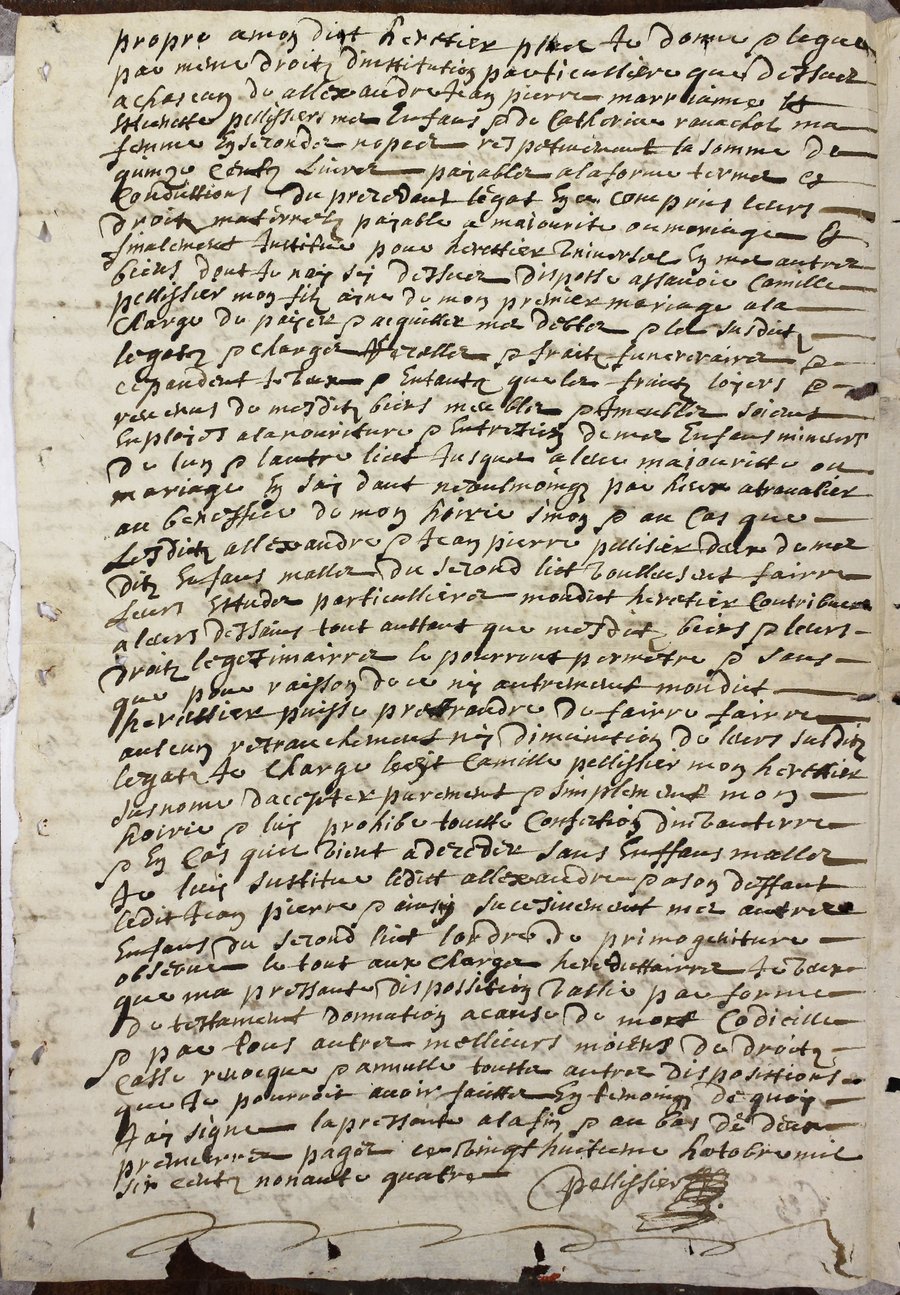 propre a mon dict heretier plus Je donne & legue
par meme droitz d'institution particulliere que dessus
a chascun de allexandre Jean pierre marrianne Et
Estienette pellissiers mes Enfans & de Catherine ravachol ma
femme En secondes nopces respetivement la somme de
quinze Centz Livres payables a la forme termes &
Condissions du precedant legat En ce compris leurs
droitz maternelz payable a majourite ou mariage Et
finalement Institue pour herettier Universel En mes autres
biens dont Je nay sy dessus disposse assavoir Camille
pellissier mon filz ayne de mon premier mariage a la
Charge de payer & aquitter mes debtes & les susditz
legatz & Charges & fraitz funereraires &
cependent Je veux & Entantz que les fruitz loyers &
revenus de mesditz biens meubles & Imeubles soient
Employes a la nouriture & Entretien de mes Enfans mineurs
de lun & lautre lict Jusques a leur majouritte ou
mariage En saydant neaulmoingz par heux a travalier
au beneffice de mon hoirie sinon & au Cas que
Lesditz allexandre & Jean pierre pellisier deux de mes
ditz Enfans malles du second lict voulleusent fairre
Leurs Estudes particullieres mondict heretier Contribuera
a leurs dessains tout auttant que mesditz biens & leurs
droitz legetimairres le pourront permetre & sans
que pour raisson de ce ny autrement mondict
herettier puisse prettandre de fairre fairre
auleun retranchement ny diminution de leurs susditz
legatz Je Charge ledit Camille pellissier mon herettier
susnome daccepter purement & simplement mon
hoirie & luy prohibe toutte Confection dinvanterre
& En Cas quil vient a deceder sans Enffans malles
Je luy sustitue ledict allexandre & a son deffaut
ledit Jean pierre & ainsy sucesivement mes autres
Enfans du second lict lordre de primogeniture
observe le tout aux Charges heredittairres Je veux
que ma pressante dispossition vallie par forme
de testament donnation a cause de mort Codicille
& par tous autres mellieurs moiens de droitz
Casse revocque & annulle touttes autres dispositions
que Je pourrois avoir faittes En temoing de quoy
Jay signe la pressante a la fin & au bas de deux
premierres pages ce vingt huitieme hotobre mil
six centz nonante quatre
Pellissier